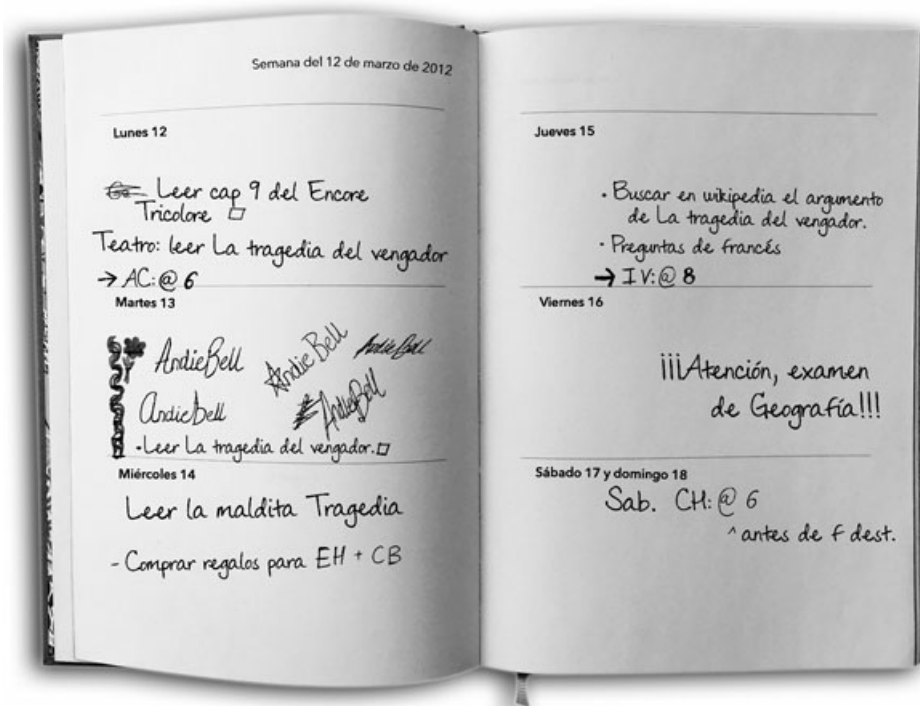 Semana del 12 de marzo de 2012
Lunes 12
Leer cap 9 del Encore
Tricolore
Teatro: leer La tragedia del vengador
→ AC:@ 6
Martes 13
AndieBell
Andie Bell
Andie Bell
AndieBell
AndieBell
•Leer La tragedia del vengador.
Miércoles 14
Leer la maldita Tragedia
- Comprar regalos para EH + CB
Jueves 15
• Buscar en wikipedia el argumento
de La tragedia del vengador.
• Preguntas de francés
→ IV:@ 8
Viernes 16
¡¡¡Atención, examen
de Geografía!!!
Sábado 17 y domingo 18
Sab. CH:@ 6
^ antes de f dest.